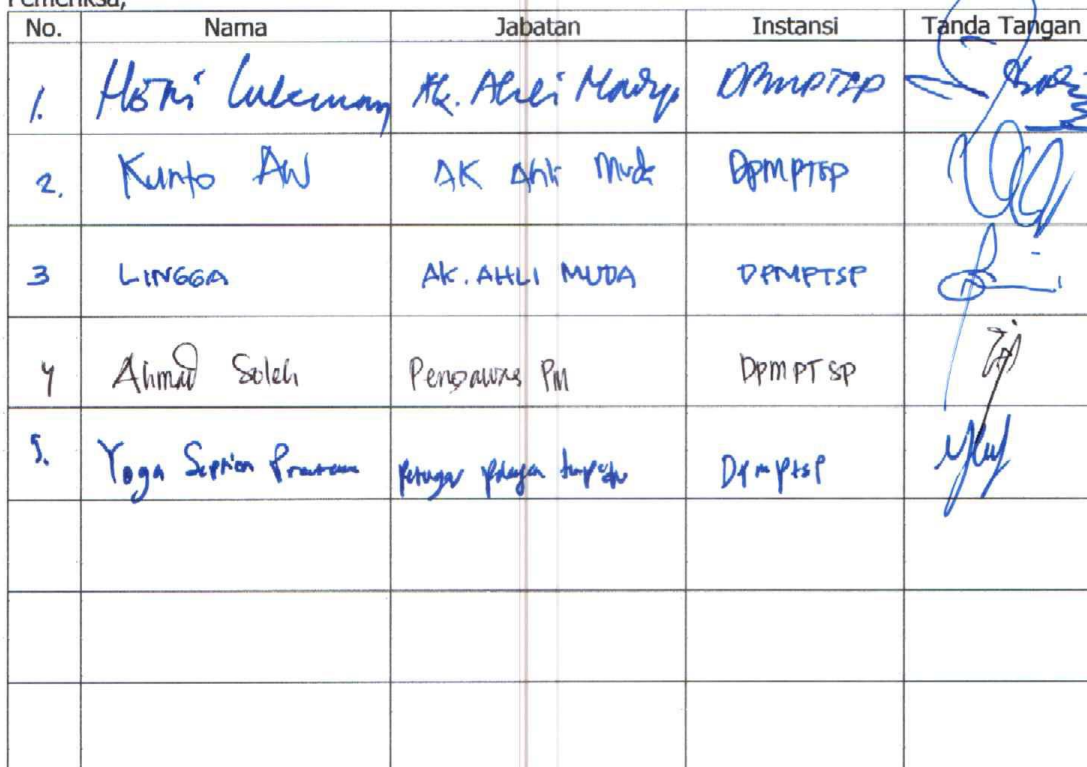 Pemeriksa,
No. Nama Jabatan Instansi Tanda Tangan
1. Lukeman Ak. Ahli Madya DPMPTSP
2. Kunto AW AK Ahli Muda DPMPTSP
3 LINGGA AK. AHLI MUDA DPMPTSP
4 Ahmad Soleh Pengawas PM DPMPTSP
5. Yoga Septian Pratama Petugas DPMPTSP